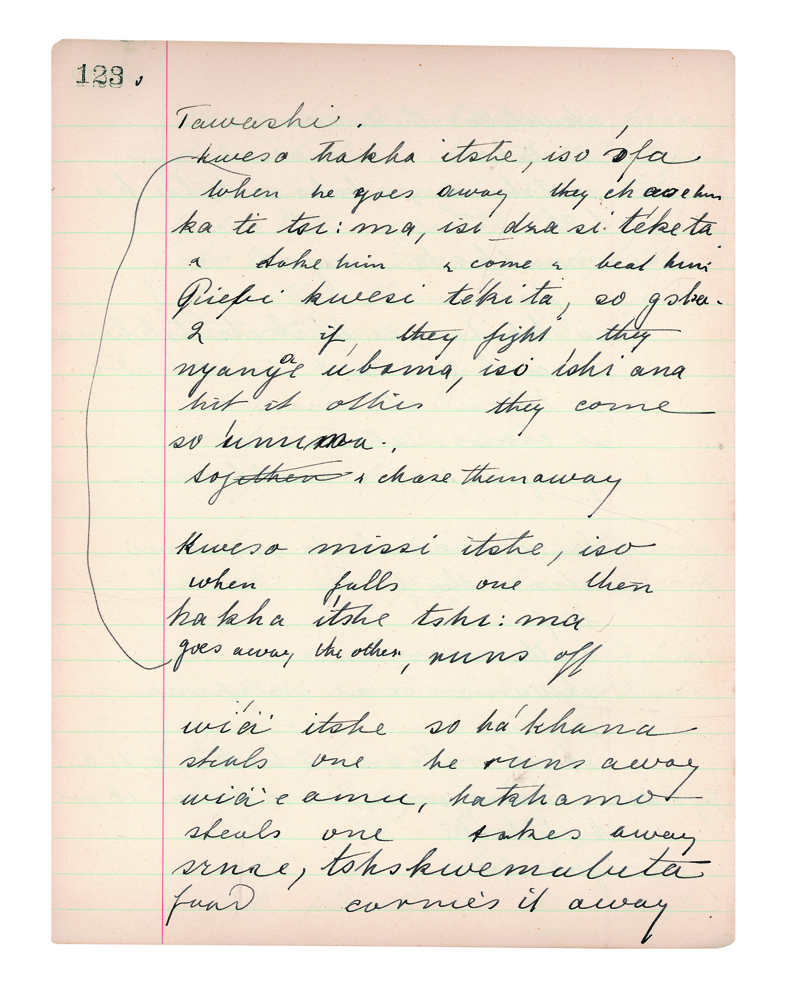 123
Tawashi.
kweso hakha itshe, iso ófa
when he goes away they chase him
ka te tsi:ma, isi dza si téketa
& take him & come & beat him
kwesi tékita, so
2 if, they fight they
úboma, iso íshi ana
hit it others they come
so
together & chase them away
Kweso missi itshe, iso
when falls one then
hakha ítshe tshi:ma
goes away the other, runs off
itshe so há'khana
steals one he runs away
e amu, hakhamo
steals one takes away
food carries it away